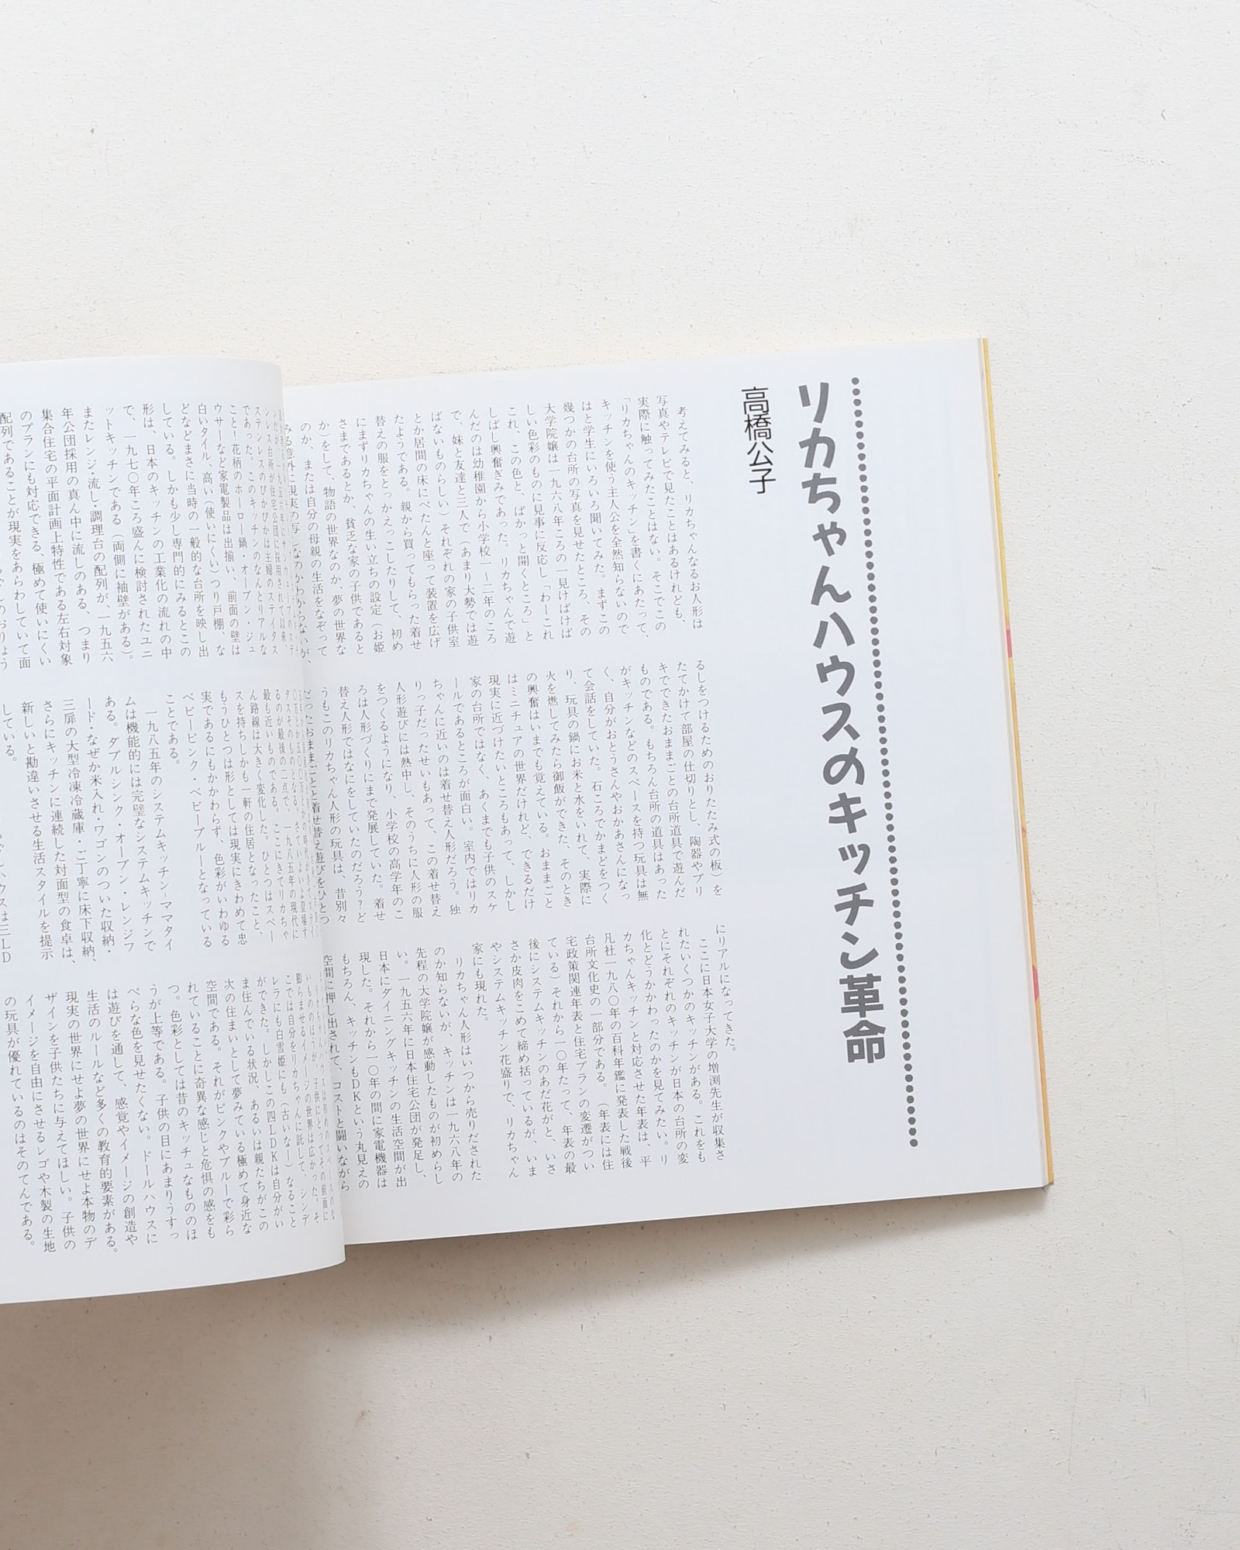 リカちゃんハウスのキッチン革命
高橋公子
考えてみると、リカちゃんなるお人形は
写真やテレビで見たことはあるけれども、
実際に触ってみたことはない。そこでこの
「リカちゃんのキッチン」を書くにあたって、
キッチンを使う主人公を全然知らないので
はと学生にいろいろ聞いてみた。まずこの
幾つかの台所の写真を見せたところ、その
大学院嬢は一九六八年ごろの一見けばけば
しい色彩のものに見事に反応し「わーこれ
これ、この色と、ぱかっと開くところ」と
しばし興奮ぎみであった。リカちゃんで遊
んだのは幼稚園から小学校一〜二年のころ
で、妹と友達と三人で（あまり大勢では遊
ばないものらしい）それぞれの家の子供室
とか居間の床にぺたんと座って装置を広げ
たようである。親から買ってもらった着せ
替えの服をとっかえっこしたりして、初め
にまずリカちゃんの生い立ちの設定（お姫
さまであるとか、貧乏な家の子供であると
か）をして、物語の世界なのか夢の世界な
のか、または自分の母親の生活をなぞって
るしをつけるためのおりたたみ式の板）を
たてかけて部屋の仕切りとし、陶器やブリ
キでできたおままごとの台所道具で遊んだ
ものである。もちろん台所の道具はあった
がキッチンなどのスペースを持つ玩具は無
く、自分がおとうさんやおかあさんになっ
て会話をしていた。石ころでかまどをつく
り、玩具の鍋にお米と水をいれて、実際に
火を燃してみたら御飯ができた、そのとき
の興奮はいまでも覚えている。おままごと
はミニチュアの世界だけれど、できるだけ
現実に近づけたいところもあって、しかし
家の台所ではなく、あくまでも子供のスケ
ールであるところが面白い。室内ではリカ
ちゃんに近いのは着せ替え人形だろう。独
りっ子だったせいもあって、この着せ替え
人形遊びには熱中し、そのうちに人形の服
をつくるようになり、小学校の高学年のこ
ろは人形づくりにまで発展していた。着せ
替え人形ではなにをしていたのだろう？ど
うもこのリカちゃん人形の玩具は、昔別々
だったおままごとと着せ替え遊びをひとつ
にリアルになってきた。
ここに日本女子大学の増渕先生が収集さ
れたいくつかのキッチンがある。これをも
とにそれぞれのキッチンが日本の台所の変
化とどうかかわったのかを見てみたい。リ
カちゃんキッチンと対応させた年表は、平
凡社一九八〇年の百科年鑑に発表した戦後
台所文化史の一部分である。（年表には住
宅政策関連年表と住宅プランの変遷がつい
ている）それから一〇年たって、年表の最
後にシステムキッチンのあだ花がと、いさ
さか皮肉をこめて締め括っているが、いま
やシステムキッチン花盛りで、リカちゃん
家にも現れた。
リカちゃん人形はいつから売りだされた
のか知らないが、キッチンは一九六八年の
先程の大学院嬢が感動したものが初めらし
い。一九五六年に日本住宅公団が発足し、
日本にダイニングキッチンの生活空間が出
現した。それから一〇年の間に家電機器は
もちろん、キッチンもDKという丸見えの
空間に押し出されて、コストと闘いながら
であった。このキッチンのなんとリアルな
こと！花柄のホーロー鍋・オーブン・ジュ
ウサーなど家電製品は出揃い、前面の壁は
白いタイル、高い（使いにくい）つり戸棚、な
どなどまさに当時の一般的な台所を映し出
している。しかも少し専門的にみるとこの
形は、日本のキッチンの工業化の流れの中
で、一九七〇年ころ盛んに検討されたユニ
ットキッチンである（両側に袖壁がある）。
またレンジ・流し・調理台の配列が、一九五六
年公団採用の真ん中に流しのある、つまり
集合住宅の平面計画上特性である左右対象
のプランにも対応できる、極めて使いにくい
配列であることが現実をあらわしていて面
最も近いものである。ここにきてリカちゃ
ん路線は大きく変化した。ひとつはスペー
スを持ちしかも一軒の住居となったこと、
もうひとつは形としては現実にきわめて忠
実であるにもかかわらず、色彩がいわゆる
ベビーピンク・ベビーブルーとなっている
ことである。
一九八五年のシステムキッチン・ママタイ
ムは機能的には完璧なシステムキッチンで
ある。ダブルシンク・オーブン・レンジフ
ード・なぜか米入れ・ワゴンのついた収納・
三扉の大型冷凍冷蔵庫・ご丁寧に床下収納、
さらにキッチンに連続した対面型の食卓は、
新しいと勘違いさせる生活スタイルを提示
している。
こでは自分をリカちゃんに託して、シンデ
レラにも白雪姫にも（古いなー）なること
ができた。しかしこの四LDKは自分がい
ま住んでいる状況、あるいは親たちがこの
次の住まいとして夢みている極めて身近な
空間である。それがピンクやブルーで彩ら
れていることに奇異な感じと危惧の感をも
つ。色彩としては昔のキッチュなもののほ
うが上等である。子供の目にあまりうすっ
ぺらな色を見せたくない。ドールハウスに
は遊びを通して、感覚やイメージの創造や
生活のルールなど多くの教育的要素がある。
現実の世界にせよ夢の世界にせよ本物のデ
ザインを子供たちに与えてほしい。子供の
イメージを自由にさせるレゴや木製の生地
の玩具が優れているのはそのてんである。